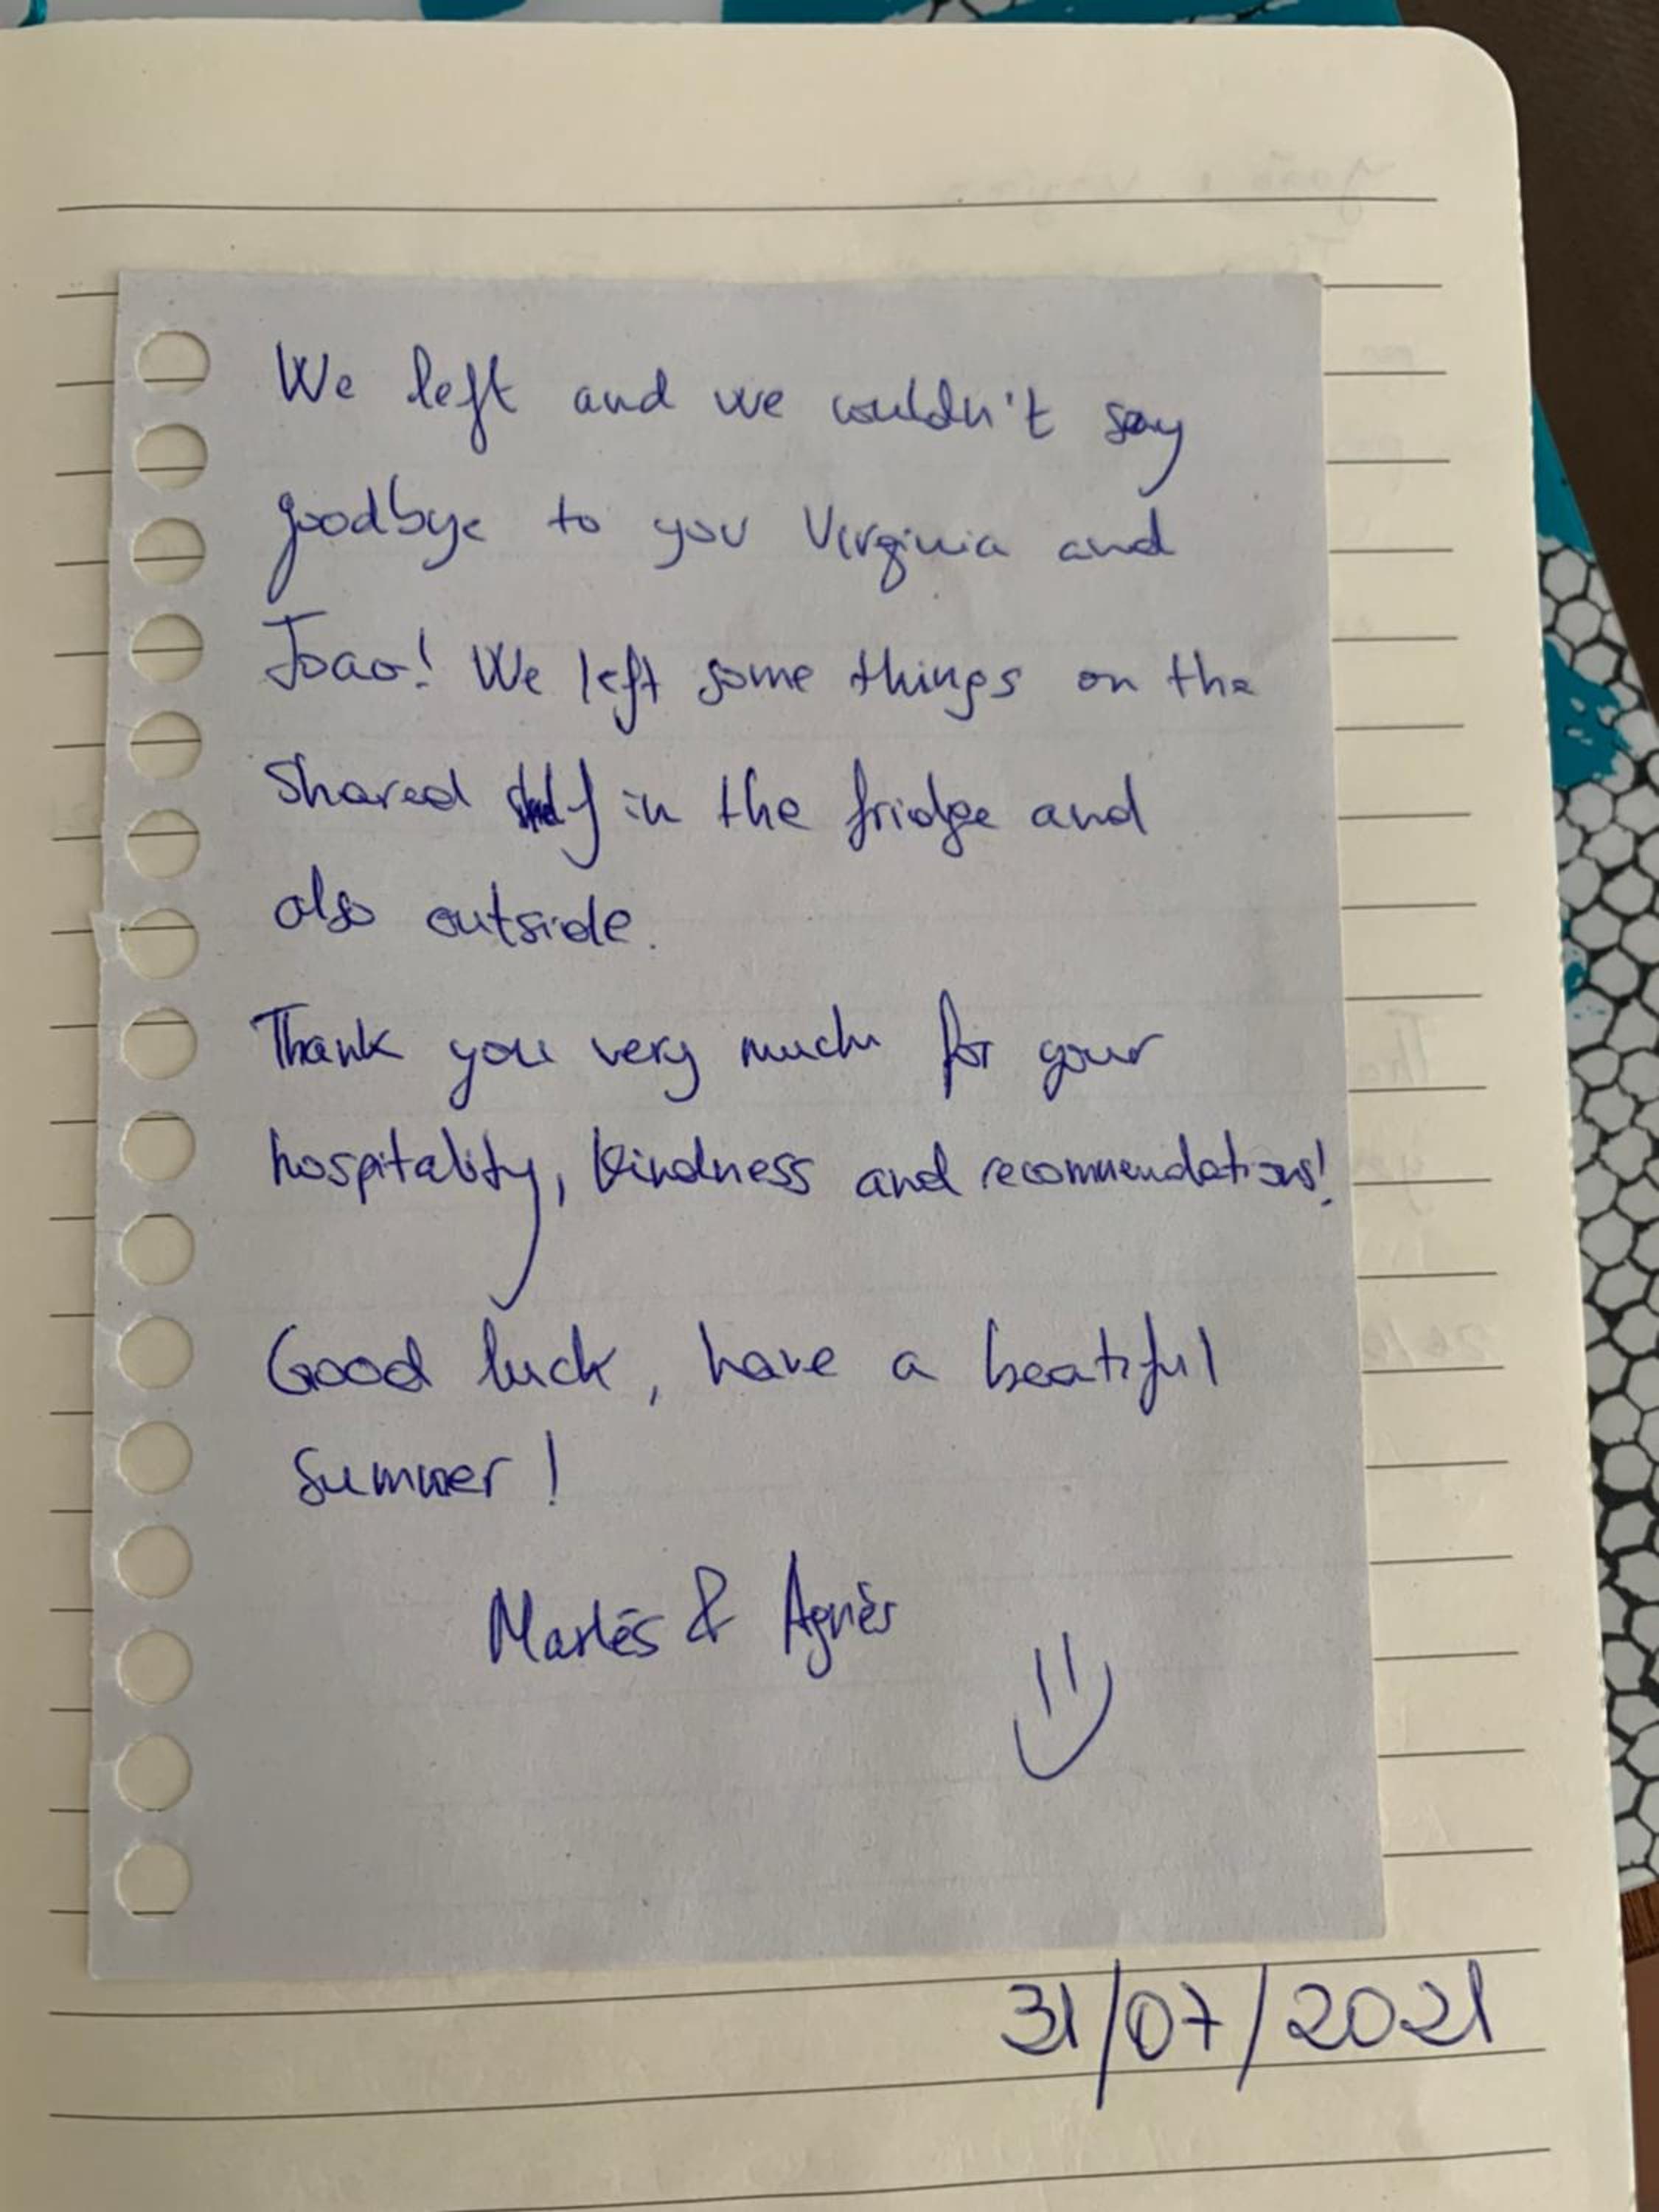 We left and we couldn't say
goodbye to you Virginia and
Joao! We left some things on the
shared shelf in the fridge and
also outside.
Thank you very much for your
hospitality, kindness and recommendations!
Good luck, have a beatiful
summer!
& Agnès
31/07/2021